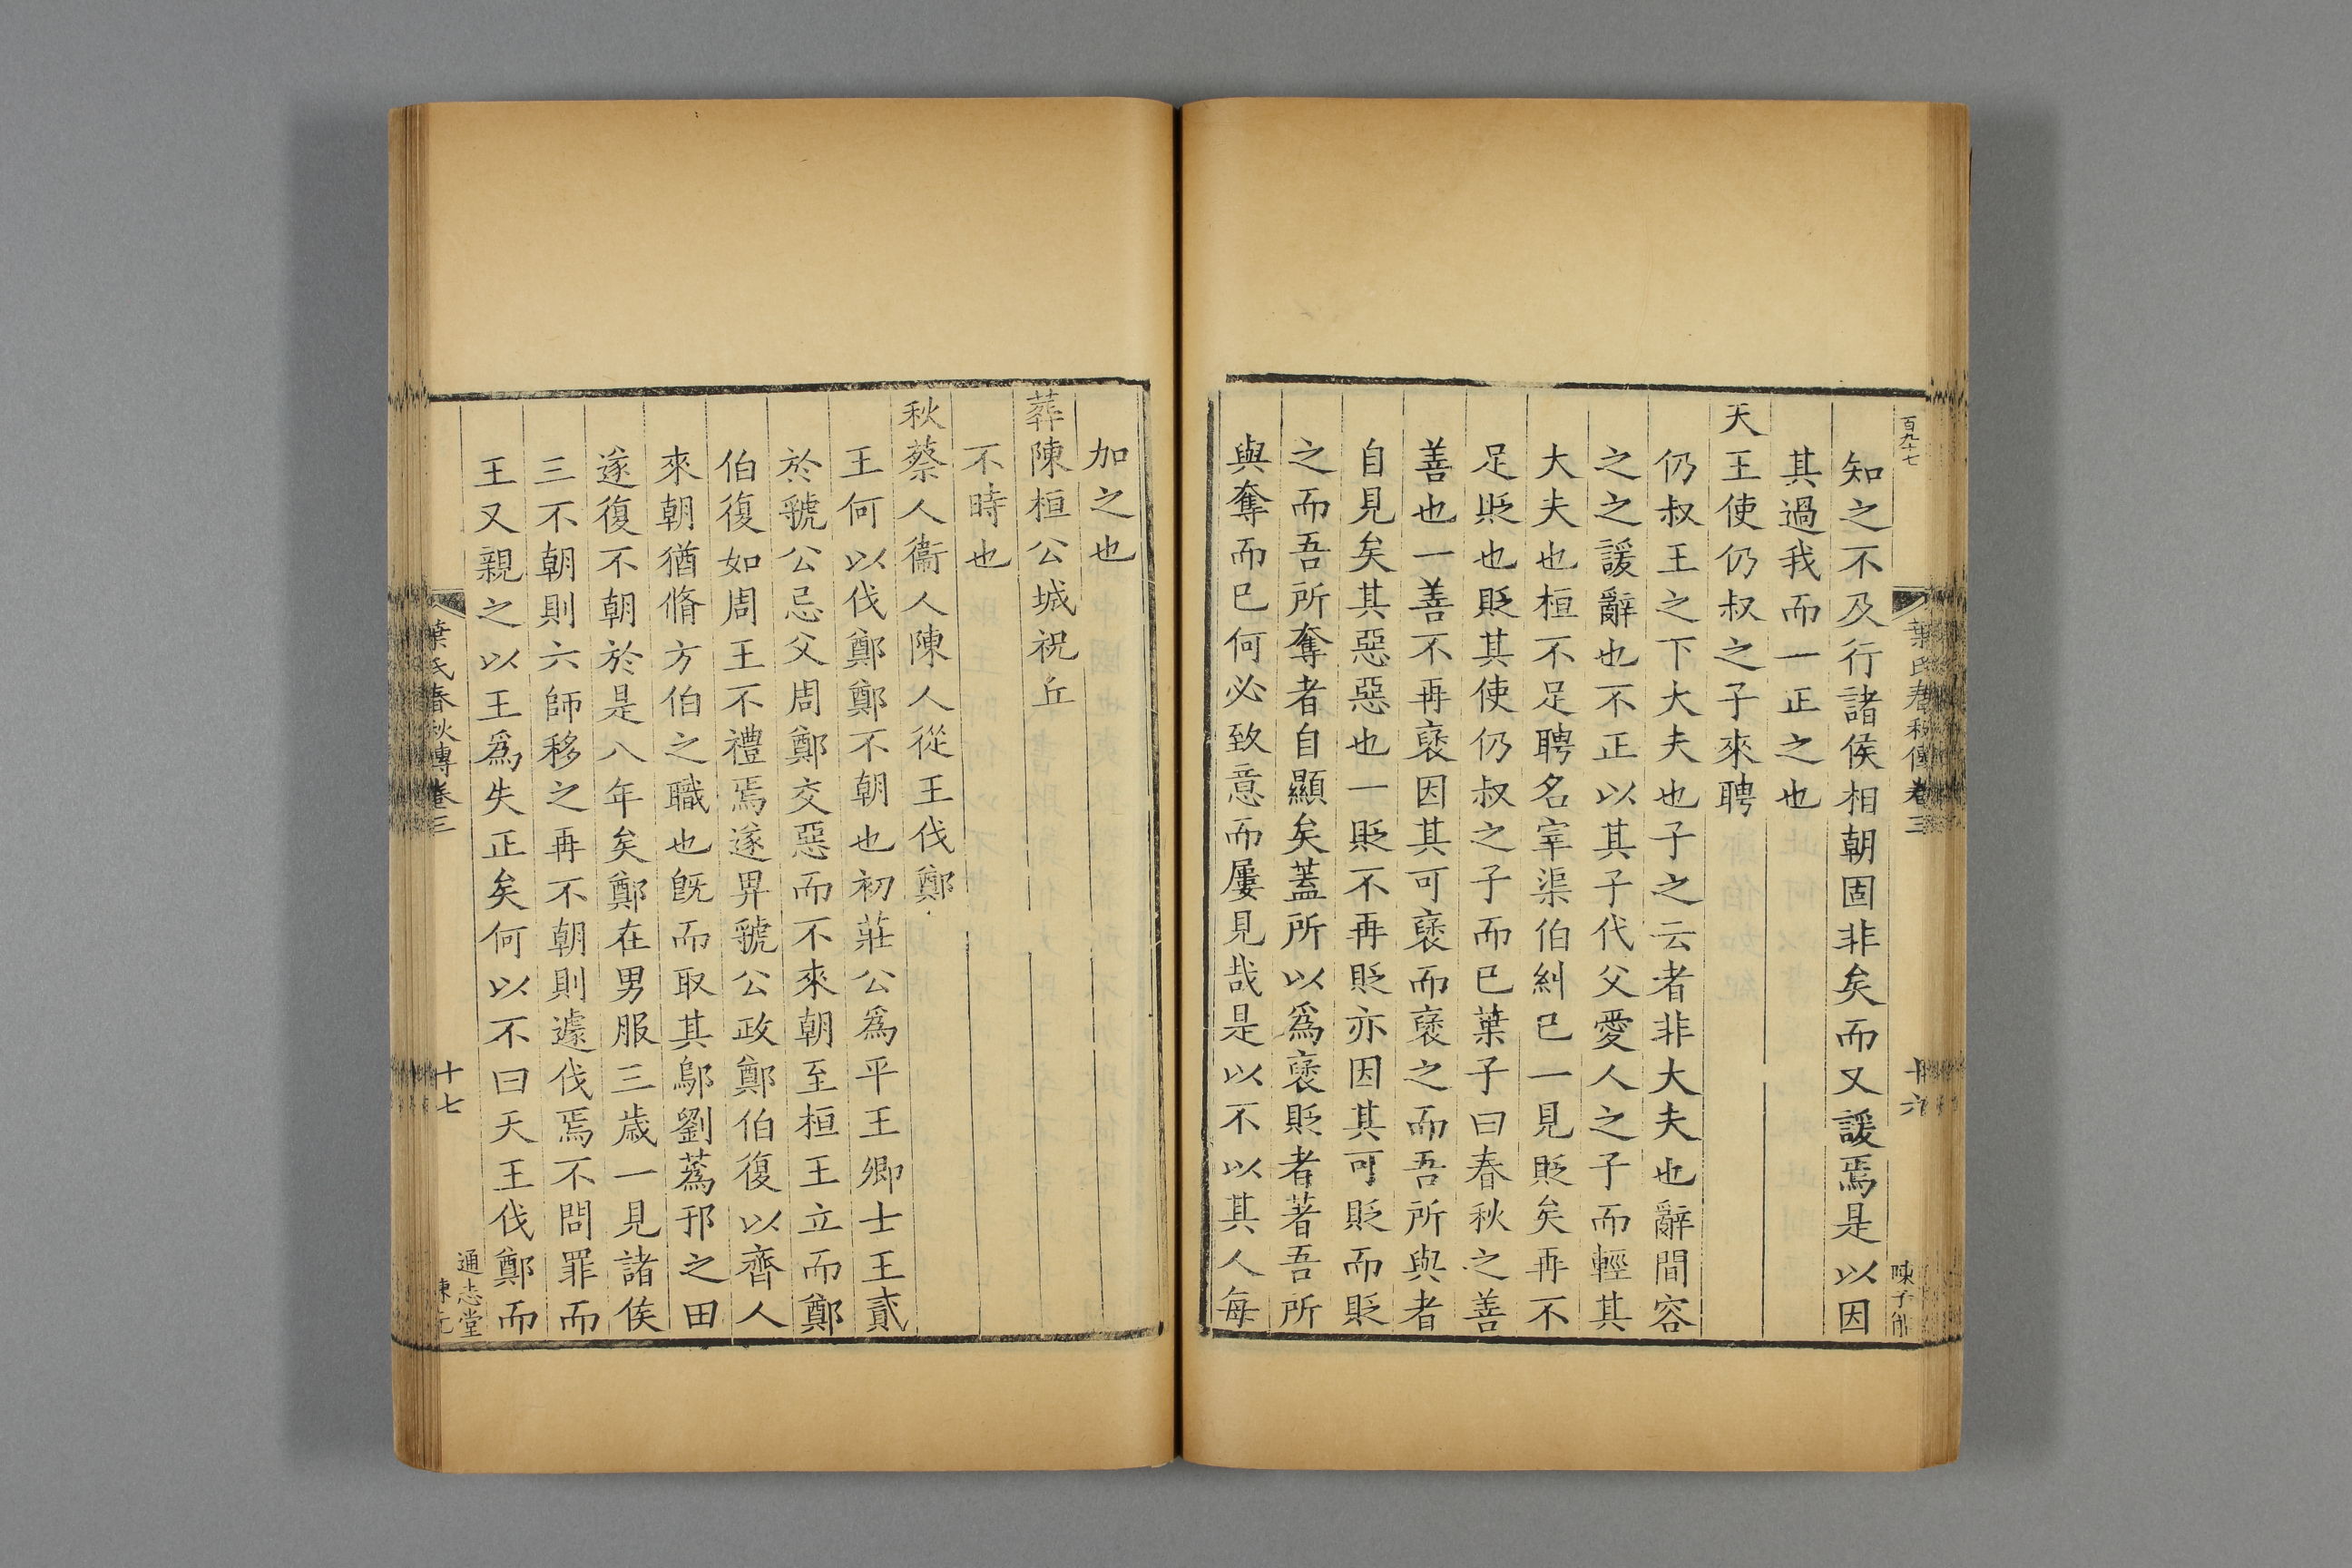 百九十七
葉氏春秋傳卷三
十六
知之不及行諸侯相朝固非矣而又諼焉是以因
其過我而一正之也
天王使仍叔之子來聘
仍叔王之下大夫也子之云者非大夫也辭間容
之之諼辭也不正以其子代父愛人之子而輕其
大夫也桓不足聘名宰渠伯糾已一見貶矣再不
足貶也貶其使仍叔之子而已葉子曰春秋之善
善也一善不再襃因其可襃而襃之而吾所與者
自見矣其惡惡也一貶不再貶亦因其可貶而貶
之而吾所奪者自顯矣蓋所以爲襃貶者著吾所
與奪而已何必致意而屢見哉是以不以其人每
加之也
葬陳桓公城祝丘
不時也
秋蔡人衞人陳人從王伐鄭
王何以伐鄭鄭不朝也初莊公爲平王卿士王貳
於虢公忌父周鄭交惡而不來朝至桓王立而鄭
伯復如周王不禮焉遂畀虢公政鄭伯復以齊人
來朝猶脩方伯之職也旣而取其鄔劉蒍邘之田
遂復不朝於是八年矣鄭在男服三歲一見諸侯
三不朝則六師移之再不朝則遽伐焉不問罪而
王又親之以王爲失正矣何以不曰天王伐鄭而
葉氏春秋傳卷三
十七
通志堂